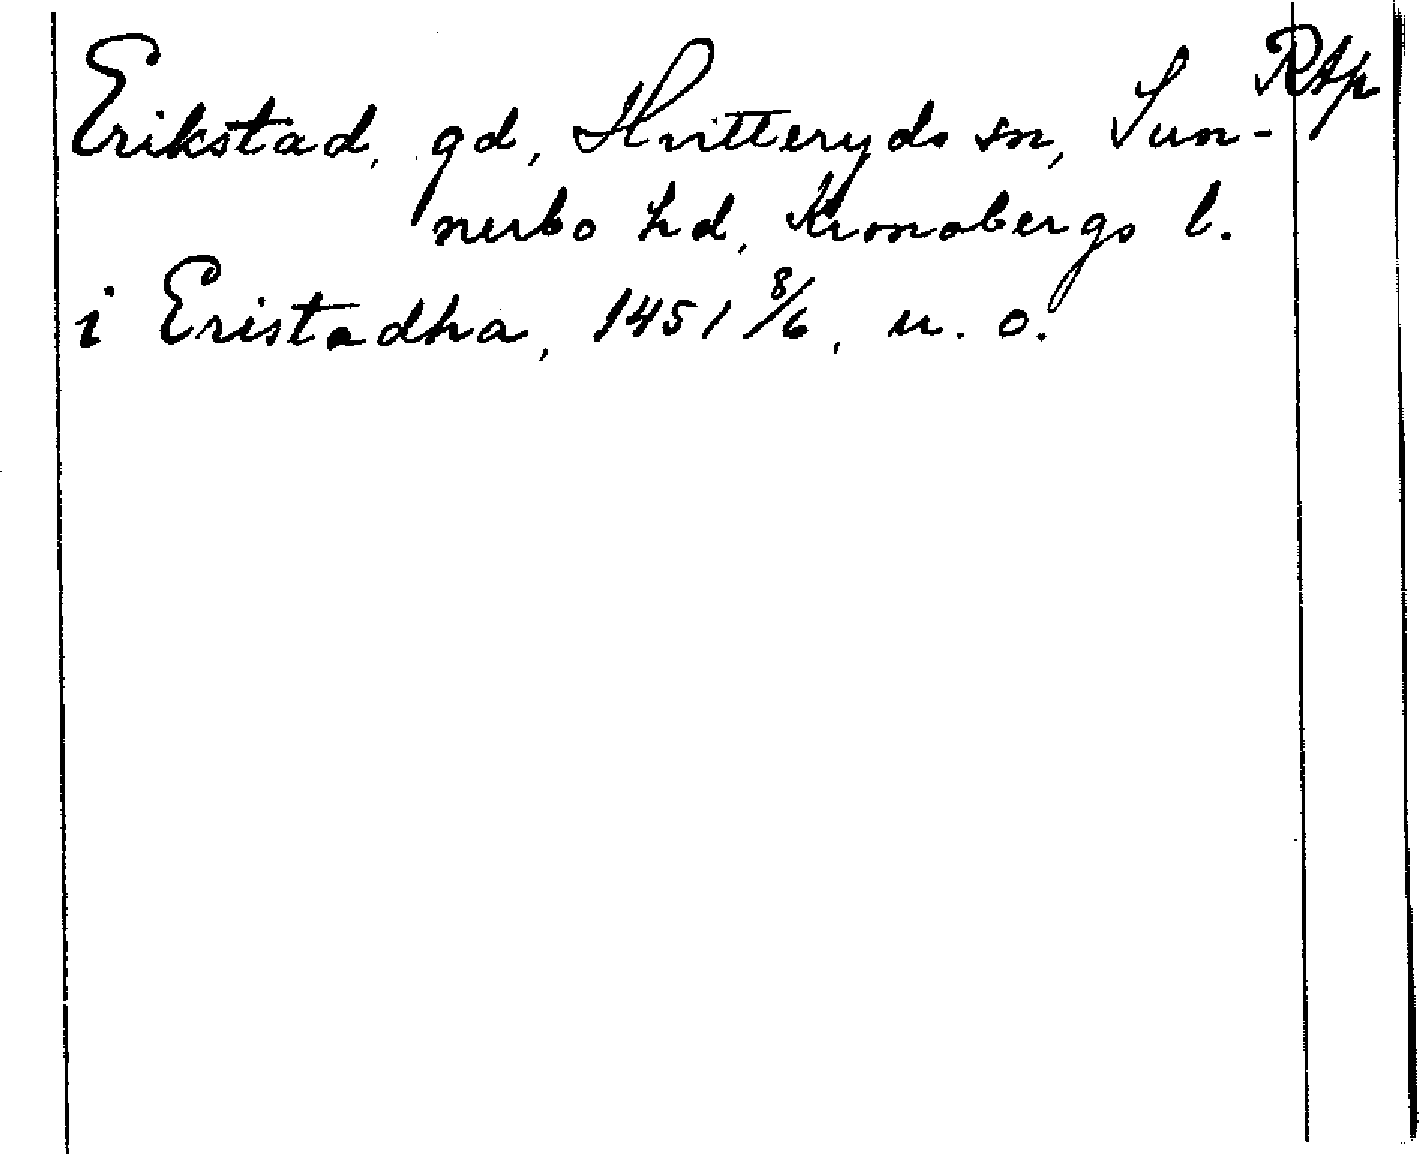 Erikstad, gd, Hvitteryds sn, Sun-
nerbo hd, Kronobergs l.
i Eristadha, 1451 8/6, u. o.
Rap